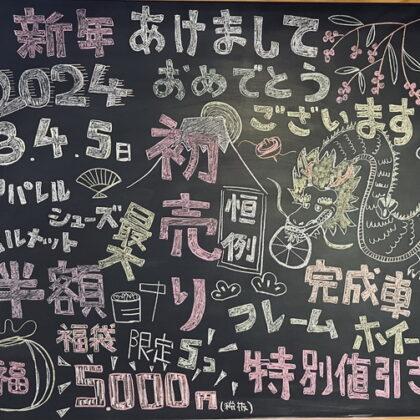 新年 あけまして
おめでとう
ございます
2024
3.4.5日
初売り
恒例
アパレル
シューズ
ヘルメット
最大
半額
完成車
フレーム
ホイー
特別値引き
福袋
限定5コ
5,000円
(税抜)
福